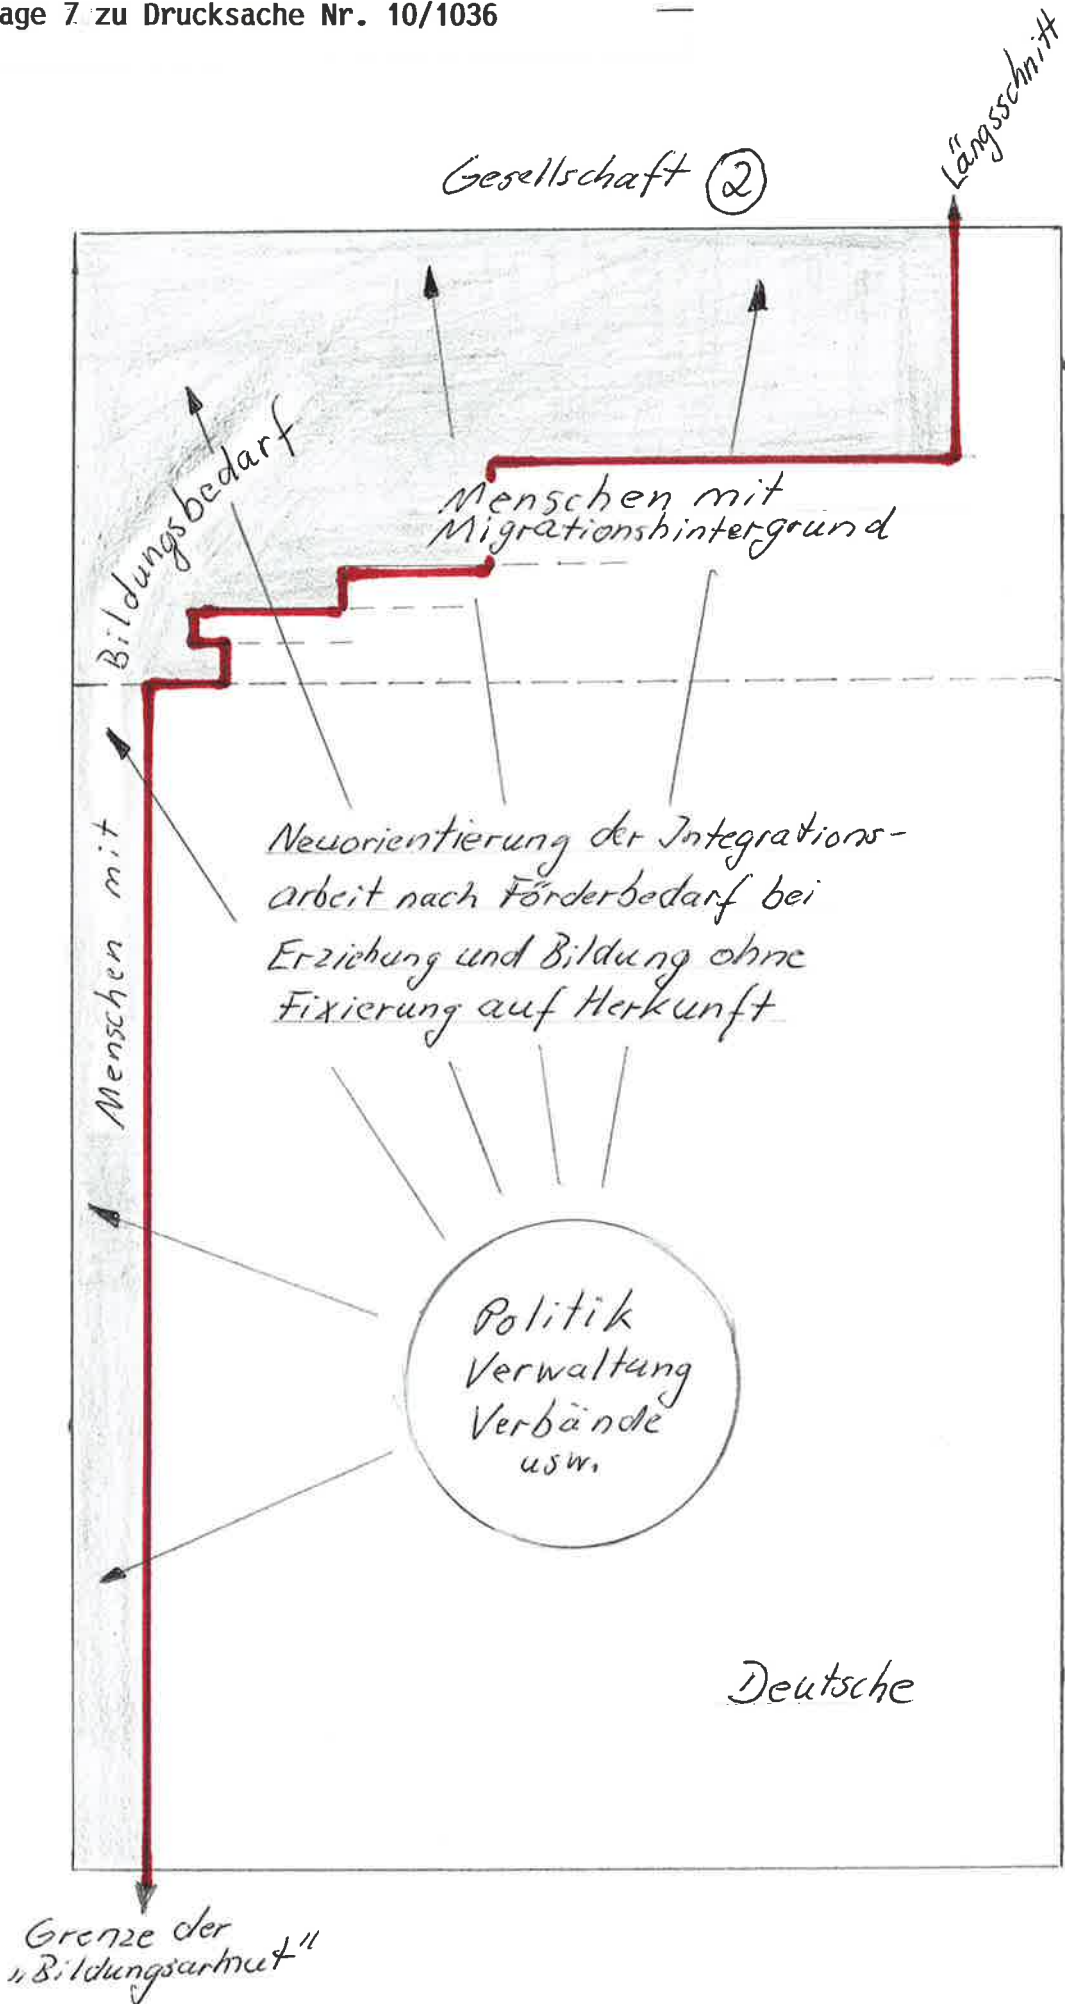 age 7 zu Drucksache Nr. 10/1036
Längsschnitt
Gesellschaft 2
Bildungsbedarf
Menschen mit
Migrationshintergrund
Menschen mit
Neuorientierung der Integrations-
arbeit nach Förderbedarf bei
Erziehung und Bildung ohne
Fixierung auf Herkunft
Politik
Verwaltung
Verbände
usw.
Deutsche
Grenze der
„Bildungsarmut"